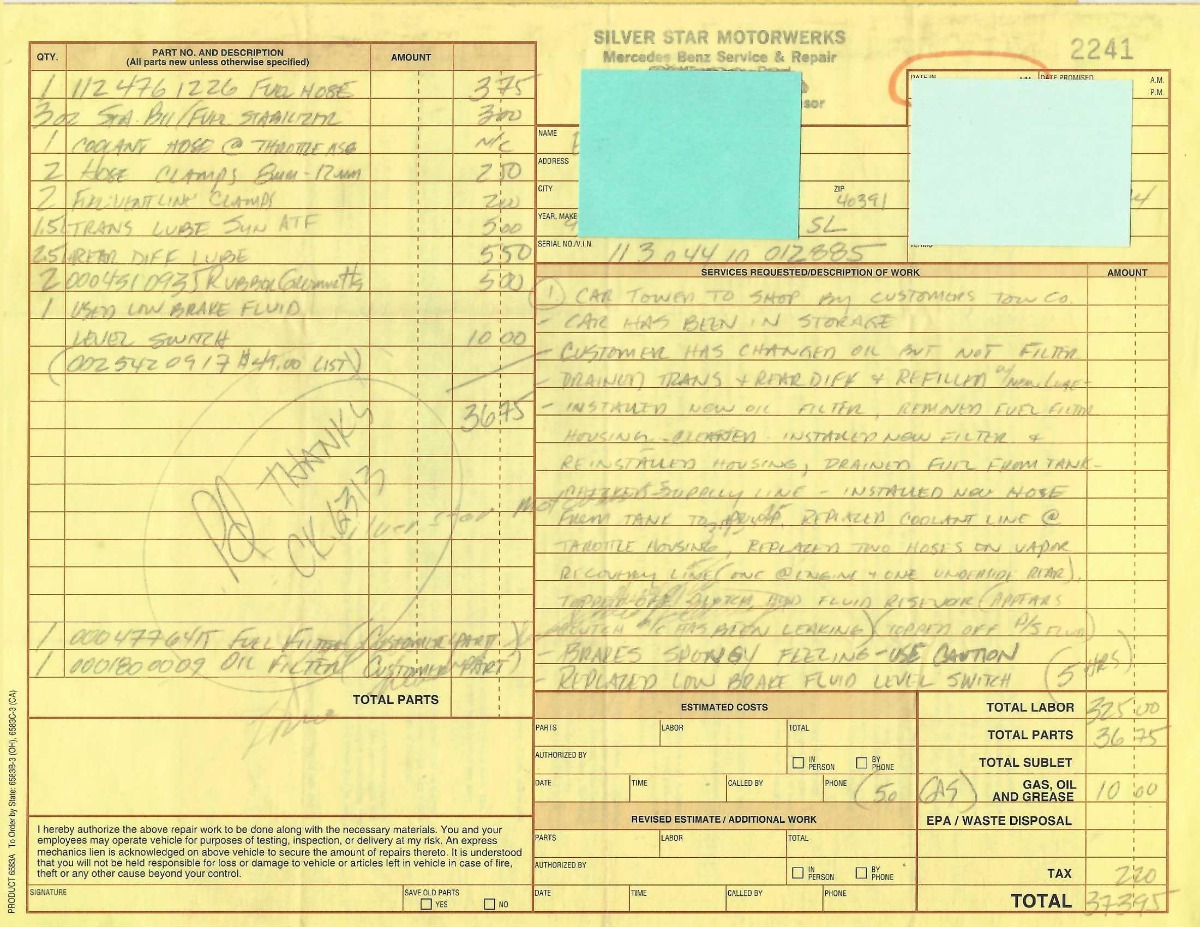 SILVER STAR MOTORWERKS
Mercedes Benz Service & Repair
2241
QTY. PART NO. AND DESCRIPTION (All parts new unless otherwise specified) AMOUNT
1 112 476 1226 FUEL HOSE 3 75
3oz STA-BIL/FUEL STABILIZER 3 00
1 COOLANT HOSE @ THROTTLE N/C
2 HOSE CLAMPS 8mm-12mm 2 50
2 CLAMPS
1.5 TRANS LUBE SUN ATF 5 00
2.5 REAR DIFF LUBE 5 50
2 RUBBER 5 00
1 USED LOW BRAKE FLUID
LEVEL SWITCH 10 00
(002 542 0917 LIST)
36 75
Pd THANKS
CK 6313
1 FUEL FILTER (CUSTOMER PART)
1 0001800009 OIL FILTER (CUSTOMER PART)
TOTAL PARTS
DATE IN DATE PROMISED A.M.
P.M.
NAME
ADDRESS
CITY ZIP 40391
YEAR, MAKE SL
SERIAL NO./V.I.N. 113 044 10 012885
SERVICES REQUESTED/DESCRIPTION OF WORK AMOUNT
(1) CAR TOWED TO SHOP BY CUSTOMERS TOW CO.
- CAR HAS BEEN IN STORAGE
- CUSTOMER HAS CHANGED OIL BUT NOT FILTER
- DRAINED TRANS & REAR DIFF & REFILLED w/ NEW LUBE-
- INSTALLED NEW OIL FILTER, REMOVED FUEL FILTER
HOUSING - CLEANED - INSTALLED NEW FILTER &
REINSTALLED HOUSING, DRAINED FUEL FROM TANK-
CHECKED SUPPLY LINE - INSTALLED NEW HOSE
FROM TANK TO REPLACED COOLANT LINE @
THROTTLE HOUSING, REPLACED TWO HOSES ON VAPOR
RECOVERY LINE (ONE @ ENGINE & ONE UNDERSIDE REAR),
TOPPED OFF CLUTCH FLUID RESEVOIR (APPEARS
CLUTCH HAS BEEN LEAKING) (TOPPED OFF P/S FLUID)
- BRAKES SPONGY FEELING - USE CAUTION
- REPLACED LOW BRAKE FLUID LEVEL SWITCH (5 HRS)
ESTIMATED COSTS
PARTS LABOR TOTAL
AUTHORIZED BY IN PERSON BY PHONE
DATE TIME CALLED BY PHONE
REVISED ESTIMATE / ADDITIONAL WORK
PARTS LABOR TOTAL
AUTHORIZED BY IN PERSON BY PHONE
DATE TIME CALLED BY PHONE
TOTAL LABOR 325 00
TOTAL PARTS 36 75
TOTAL SUBLET
(GAS) GAS, OIL AND GREASE 10 00
EPA / WASTE DISPOSAL
TAX 2 20
TOTAL 373 95
I hereby authorize the above repair work to be done along with the necessary materials. You and your
employees may operate vehicle for purposes of testing, inspection, or delivery at my risk. An express
mechanics lien is acknowledged on above vehicle to secure the amount of repairs thereto. It is understood
that you will not be held responsible for loss or damage to vehicle or articles left in vehicle in case of fire,
theft or any other cause beyond your control.
SIGNATURE SAVE OLD PARTS
YES NO
PRODUCT 6583A To Order by State: 6583B-3 (OH), 6583C-3 (CA)